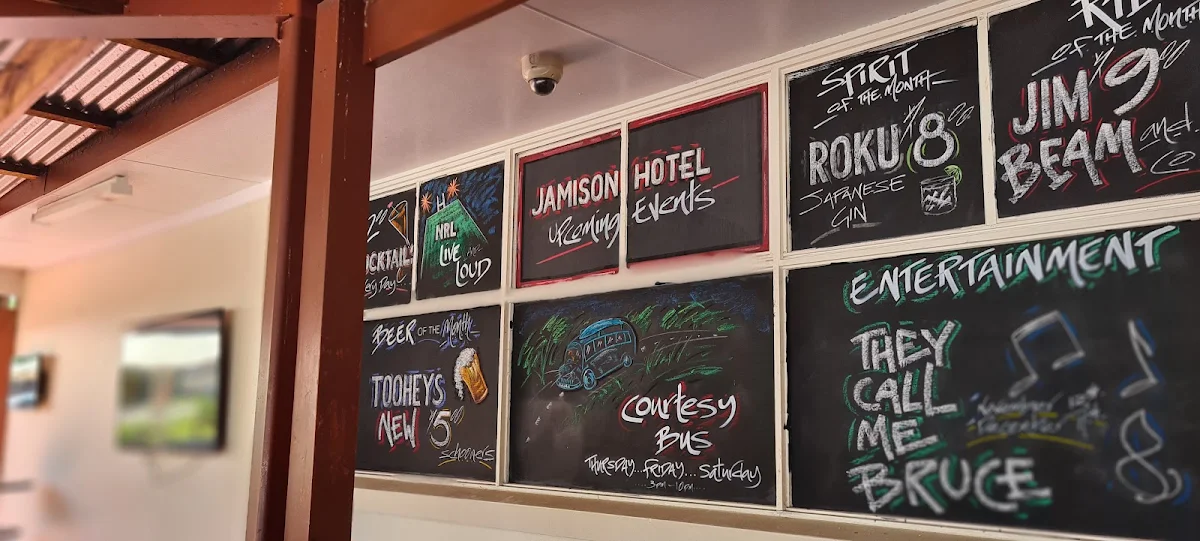 COCKTAIL
NRL
LIVE and
LOUD
JAMISON HOTEL
upcoming Events
SPIRIT
OF THE MONTH
ROKU 8
JAPANESE
GIN
OF THE MONTH
JIM 9
BEAM and
Co
BEER OF THE MONTH
TOOHEYS
NEW 5
schooners
Courtesy
Bus
THURSDAY...FRIDAY...Saturday
3pm - 10pm
ENTERTAINMENT
THEY
CALL
ME
BRUCE